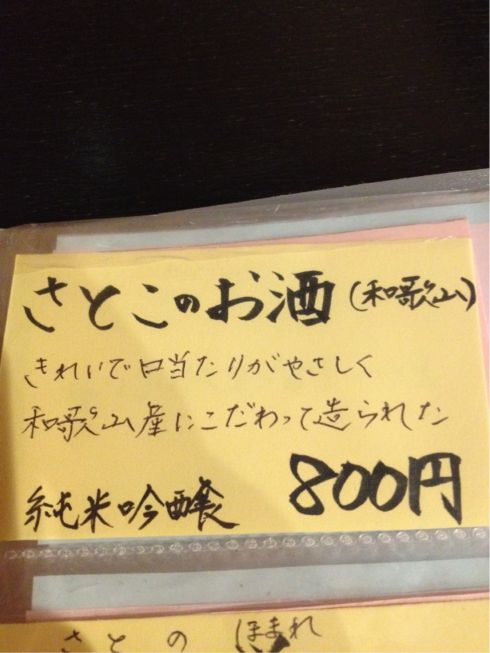 さとこのお酒(和歌山)
きれいで口当たりがやさしく
和歌山産にこだわって造られた
純米吟醸 800円
さとのほまれ